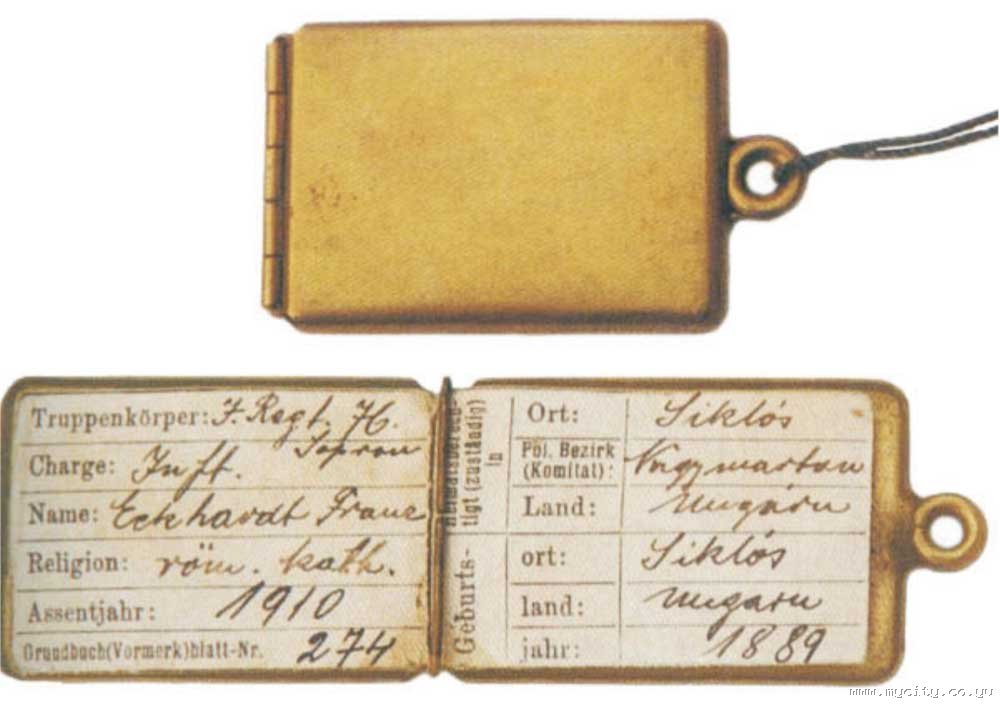 Truppenkörper: I. Regt. 76.
Sopron
Charge: Inft.
Name: Eckhardt Franz
Religion: röm. kath.
Assentjahr: 1910
Grundbuch(Vormerk)blatt-Nr. 274
Heimatsberech-
tigt (zuständig)
in
Ort: Siklós
Pol. Bezirk
(Komitat): Nagymarton
Land: Ungarn
Geburts-
ort: Siklós
land: Ungarn
jahr: 1889
www.mycity.co.yu